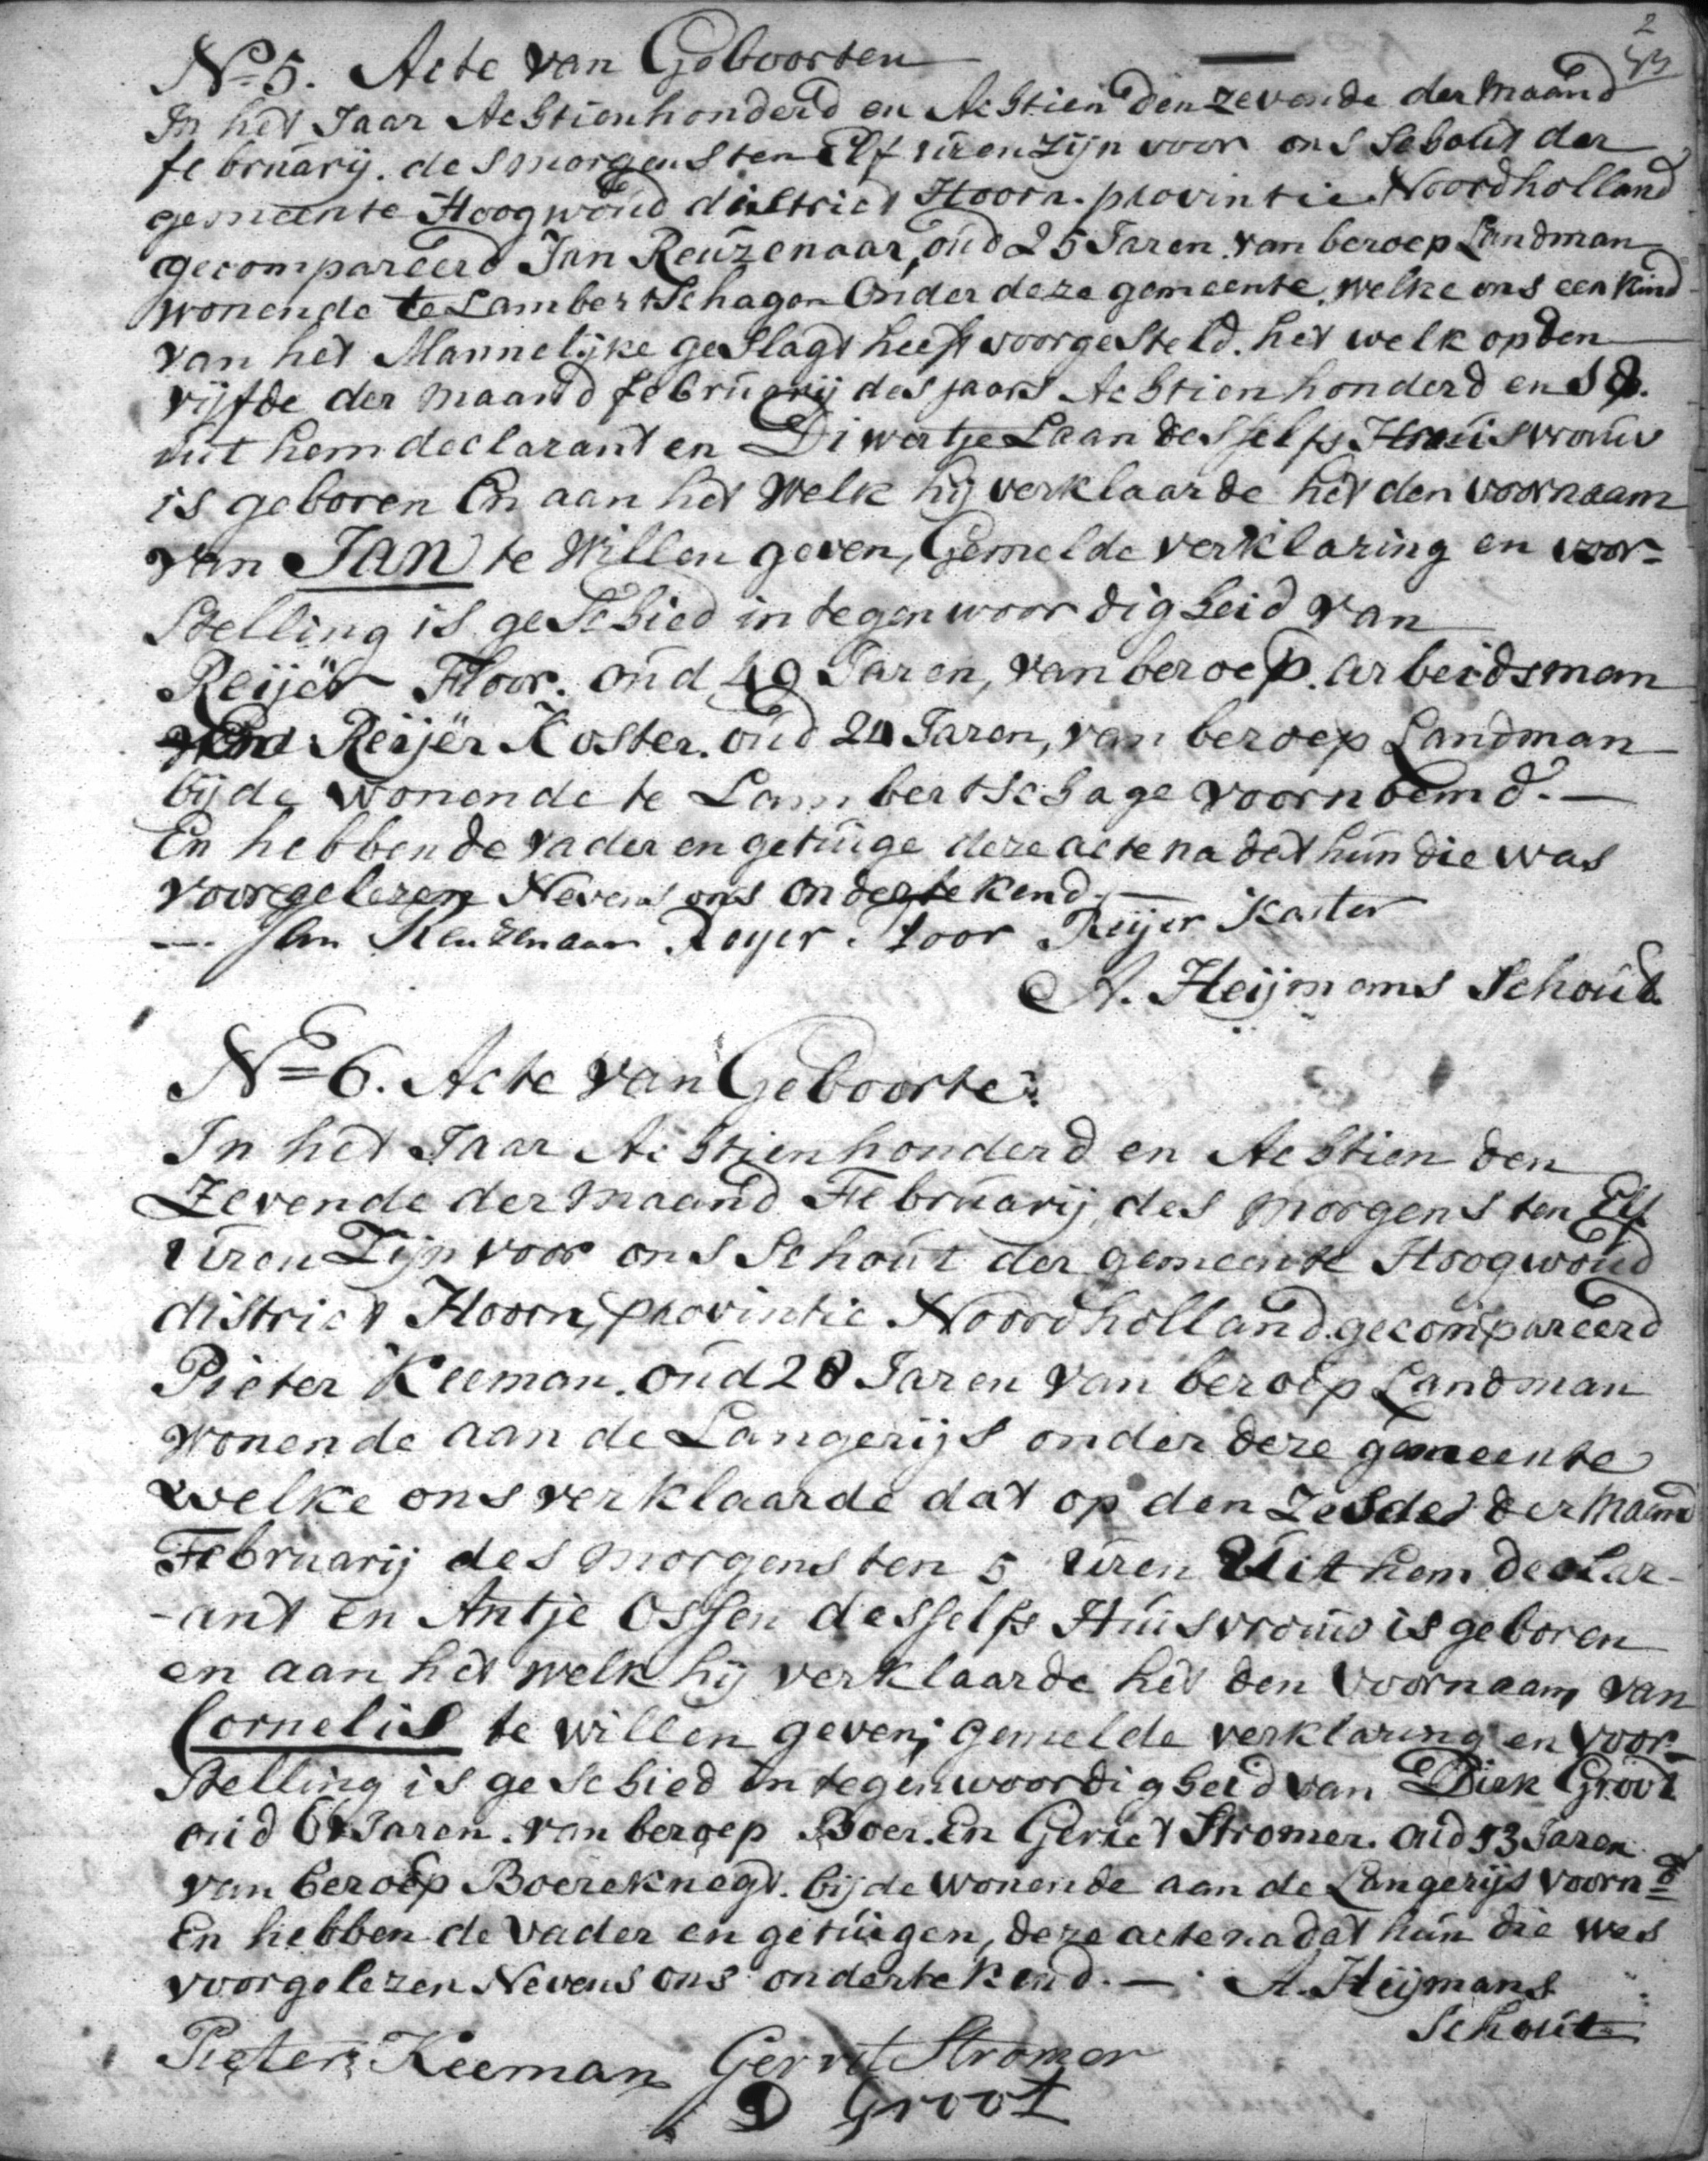 2
N=5. Acte van Geboorten
In het Jaar Achtienhonderd en Achtien den zevende der Maand
februarij. des morgens ten Elf uren zijn voor ons Schout der
gemeente Hoogwoud district Hoorn. provintie Noordholland
gecompareerd Jan Reuzenaar, oud 25 Jaren. van beroep Landman
wonende te Lambertschagen Onder deze gemeente, welke ons een kind
van het Mannelijke geslagt heeft voorgesteld. het welk op den
vijfde der maand februarij des jaars Achtien honderd en 18.
uit hem declarant en Diwertje Laan desselfs Huisvrouw
is geboren En aan het Welk hij verklaarde het den voornaam
van JAN te Willen geven, Gemelde verklaring en voor=
stelling is geschied in tegenwoordigheid van
Reijër Floor. oud 49 Jaren, van beroep. arbeidsman
En Reijër Koster. oud 24 Jaren, van beroep Landman
bijde wonende te Lambertschage voornoemd. —
En hebben de vader en getuige deze acte na dat hun die was
voorgelezen Nevens ons ondertekend. —
— Jan Reuzenaar Reyer. Floor Reijer Koster
A. Heijmans Schout
N=6. Acte van Geboorte.
In het Jaar Achtienhonderd en Achtien den
Zevende der Maand Februarij, des morgens ten Elf
uren Zijn voor ons Schout der gemeente Hoogwoud
district Hoorn, provintie Noordholland. gecompareerd
Pieter Keeman. oud 28 Jaren van beroep Landman
wonende aan de Langerijs onder deze gemeente
welke ons verklaarde dat op den Zesde der Maand
Februarij des morgens ten 5 uren Uit hem declar-
-ant en Antje Ossen desselfs Huisvrouw is geboren
en aan het welk hij verklaarde het den voornaam van
Cornelis te willen geven; gemelde verklaring en voor=
stelling is geschied in tegenwoordigheid van Dirk Groot
oud 61 Jaren. van beroep Boer. En Gerret Stromer. oud 53 Jaren
van beroep Boereknegt. bijde wonende aan de Langerijs voornd
En hebben de vader en getuigen, deze acte na dat hun die was
voorgelezen Nevens ons ondertekend. — A. Heijmans
Schout
Pieter Keeman Gerrit Stromer
D Groot